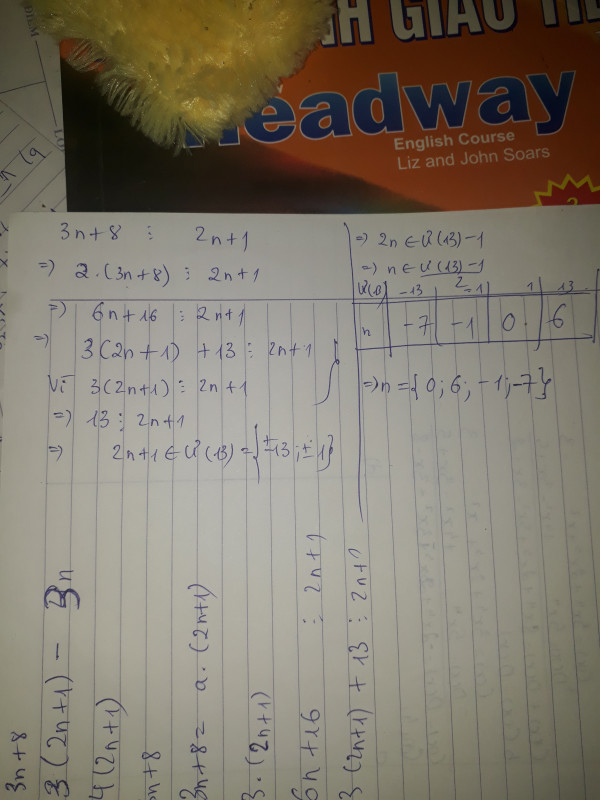 NH GIAO TIẾ
Headway
English Course
Liz and John Soars
3n+8 ⋮ 2n+1
=> 2.(3n+8) ⋮ 2n+1
=> 6n+16 ⋮ 2n+1
=> 3(2n+1) +13 ⋮ 2n+1
Vì 3(2n+1) ⋮ 2n+1
=> 13 ⋮ 2n+1
=> 2n+1 ∈ Ư(13) = {±13; ±1}
=> 2n ∈ Ư(13)-1
=> n ∈ Ư(13)-1
2
Ư(13) -13 -1 1 13
n -7 -1 0 6
=> n = {0; 6; -1; -7}
3n+8
3(2n+1) - 3n
4(2n+1)
3n+8 = a.(2n+1)
3.(2n+1)
6n+16 ⋮ 2n+1
3(2n+1) + 13 ⋮ 2n+1